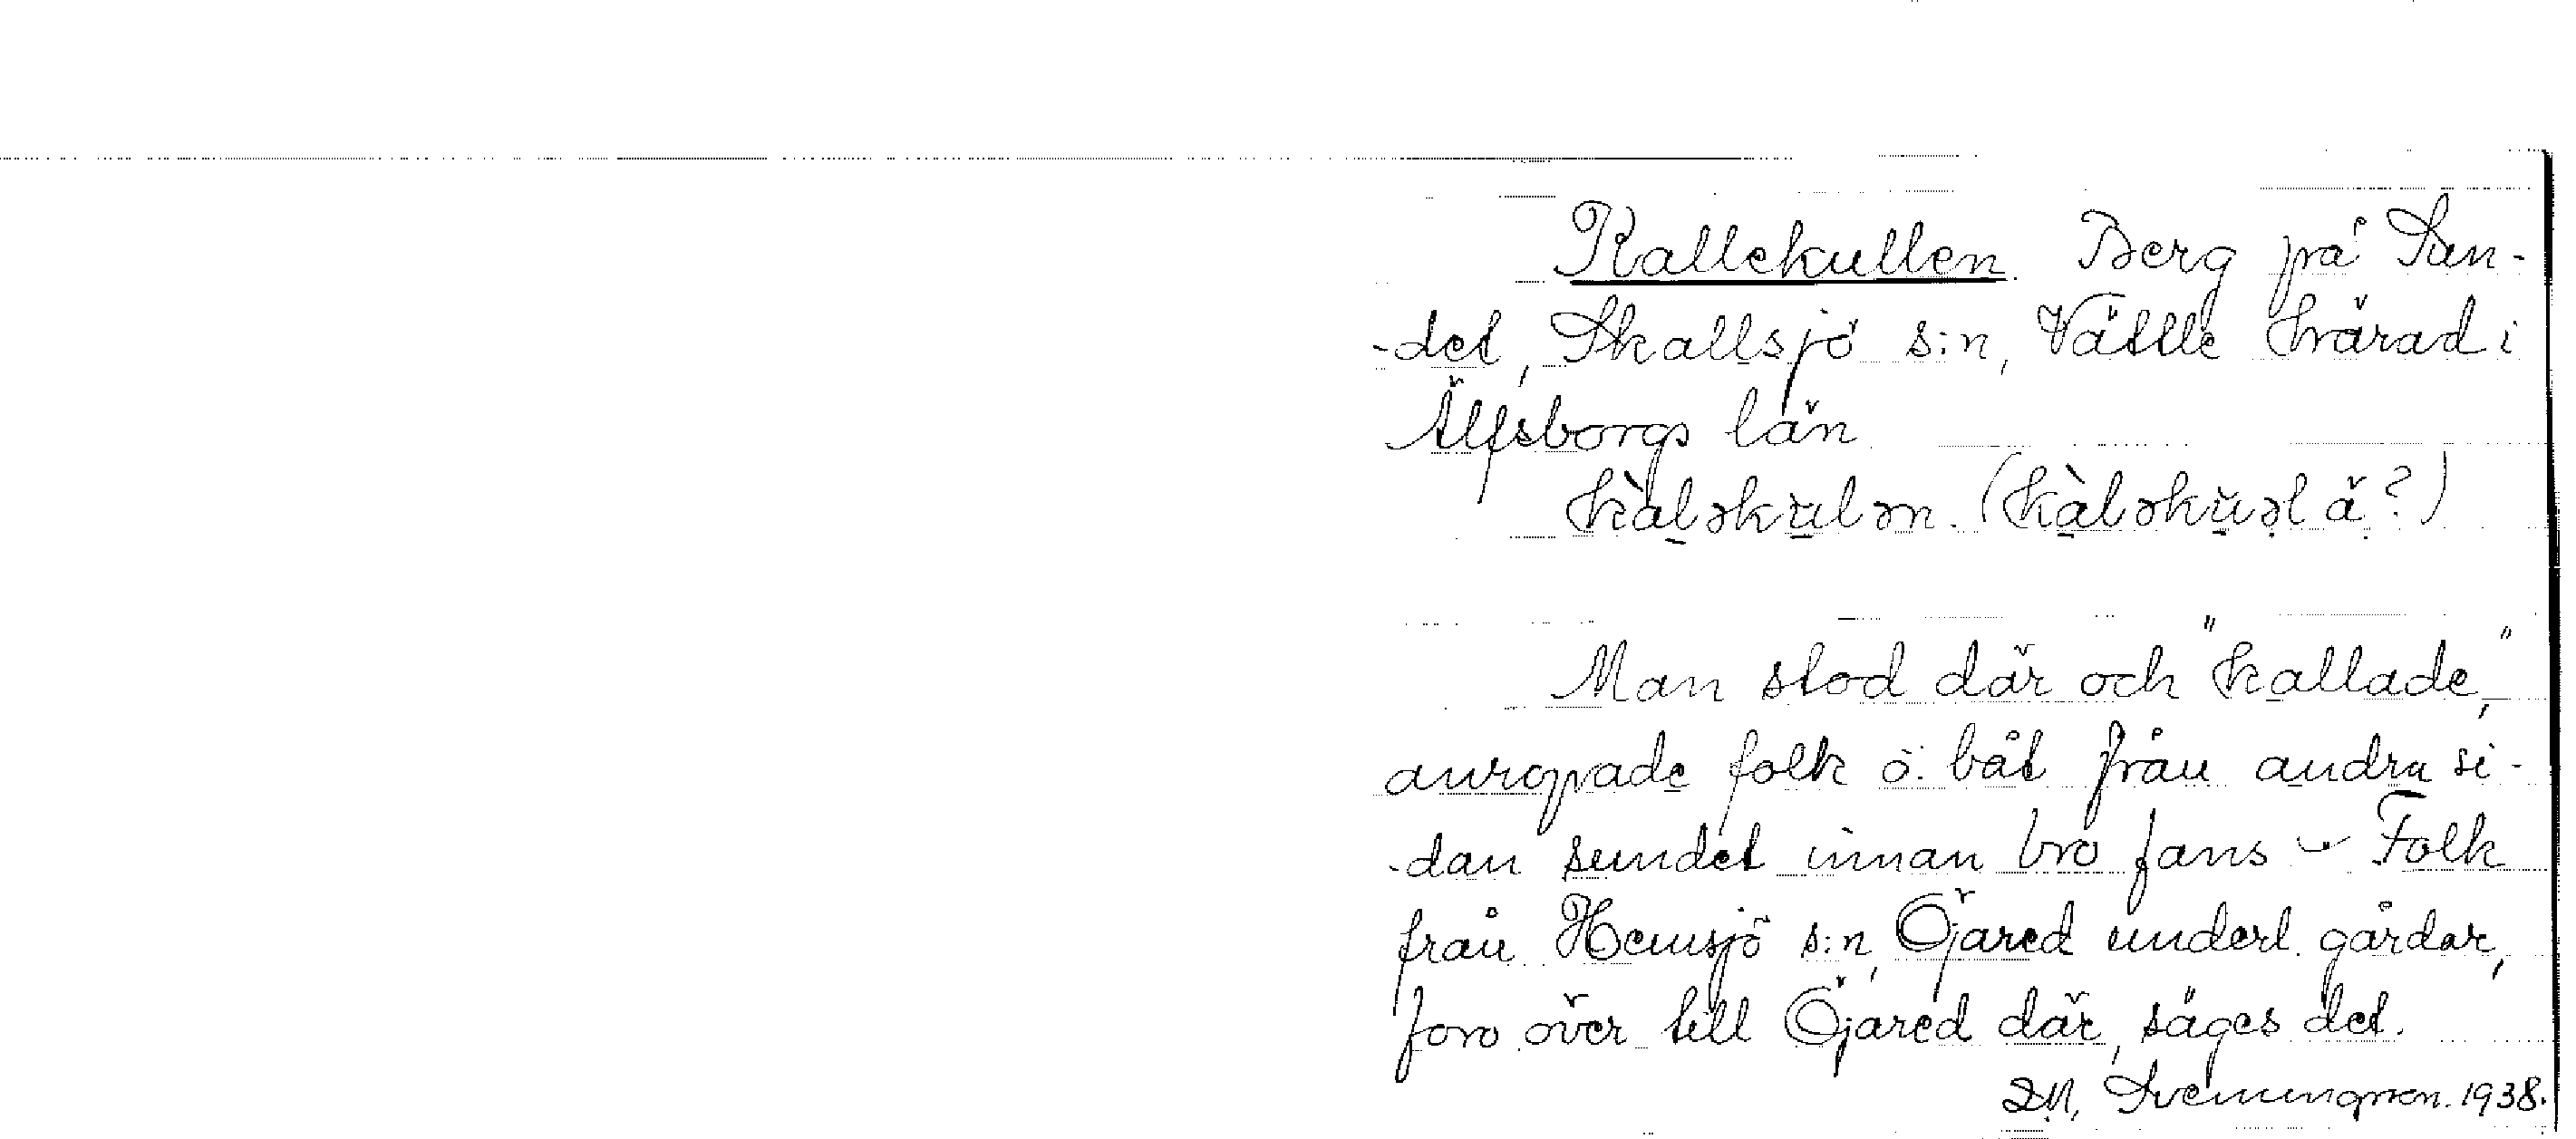 Kallekullen. Berg på Sun-
-det, Skallsjö s:n, Vättle härad i
Älfsborgs län.
kàləkulən. (kàləkuəl ä?)
Man stod där och "kallade,"
anropade folk o. båt från andra si-
-dan sundet innan bro fans – Folk
från Hemsjö s:n, Öjared underl. gårdar,
foro över till Öjared där, säges det.
Svenningson. 1938.